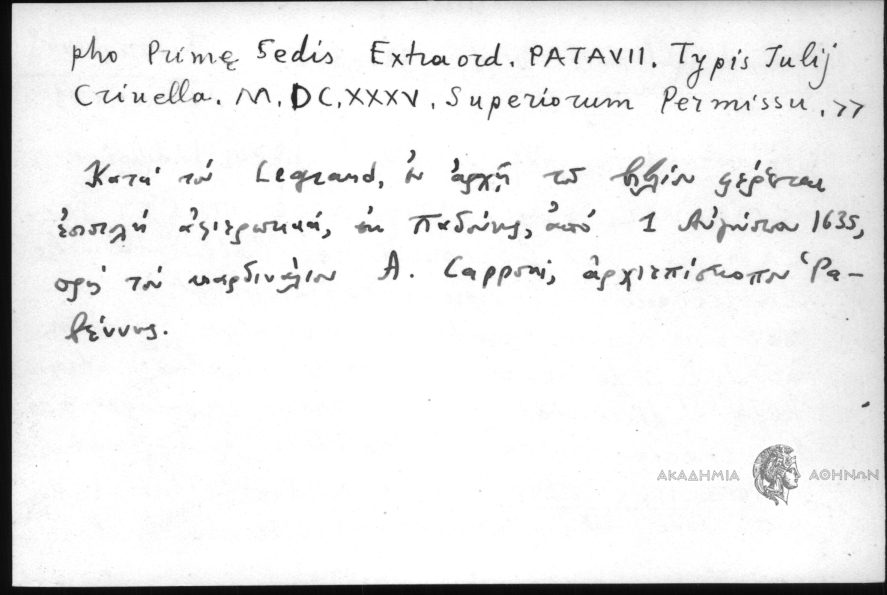 pho Primę Sedis Extraord. PATAVII. Typis Iulij
Criuella. M.DC.XXXV. Superiorum Permissu.»
Κατὰ τὸν Legrand, ἐν ἀρχῇ τοῦ βιβλίου φέρεται
ἐπιστολὴ ἀφιερωτική, ἐκ Παδούης, ἀπὸ 1 Αὐγούστου 1635,
πρὸς τὸν καρδινάλιον A. Capponi, ἀρχιεπίσκοπον Ῥα-
βέννης.
ΑΚΑΔΗΜΙΑ ΑΘΗΝΩΝ